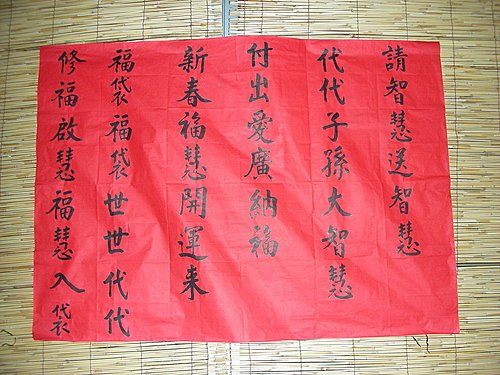 請智慧送智慧
代代子孫大智慧
付出愛廣納福
新春福慧開運来
福袋福袋世世代代
修福啟慧福慧入袋